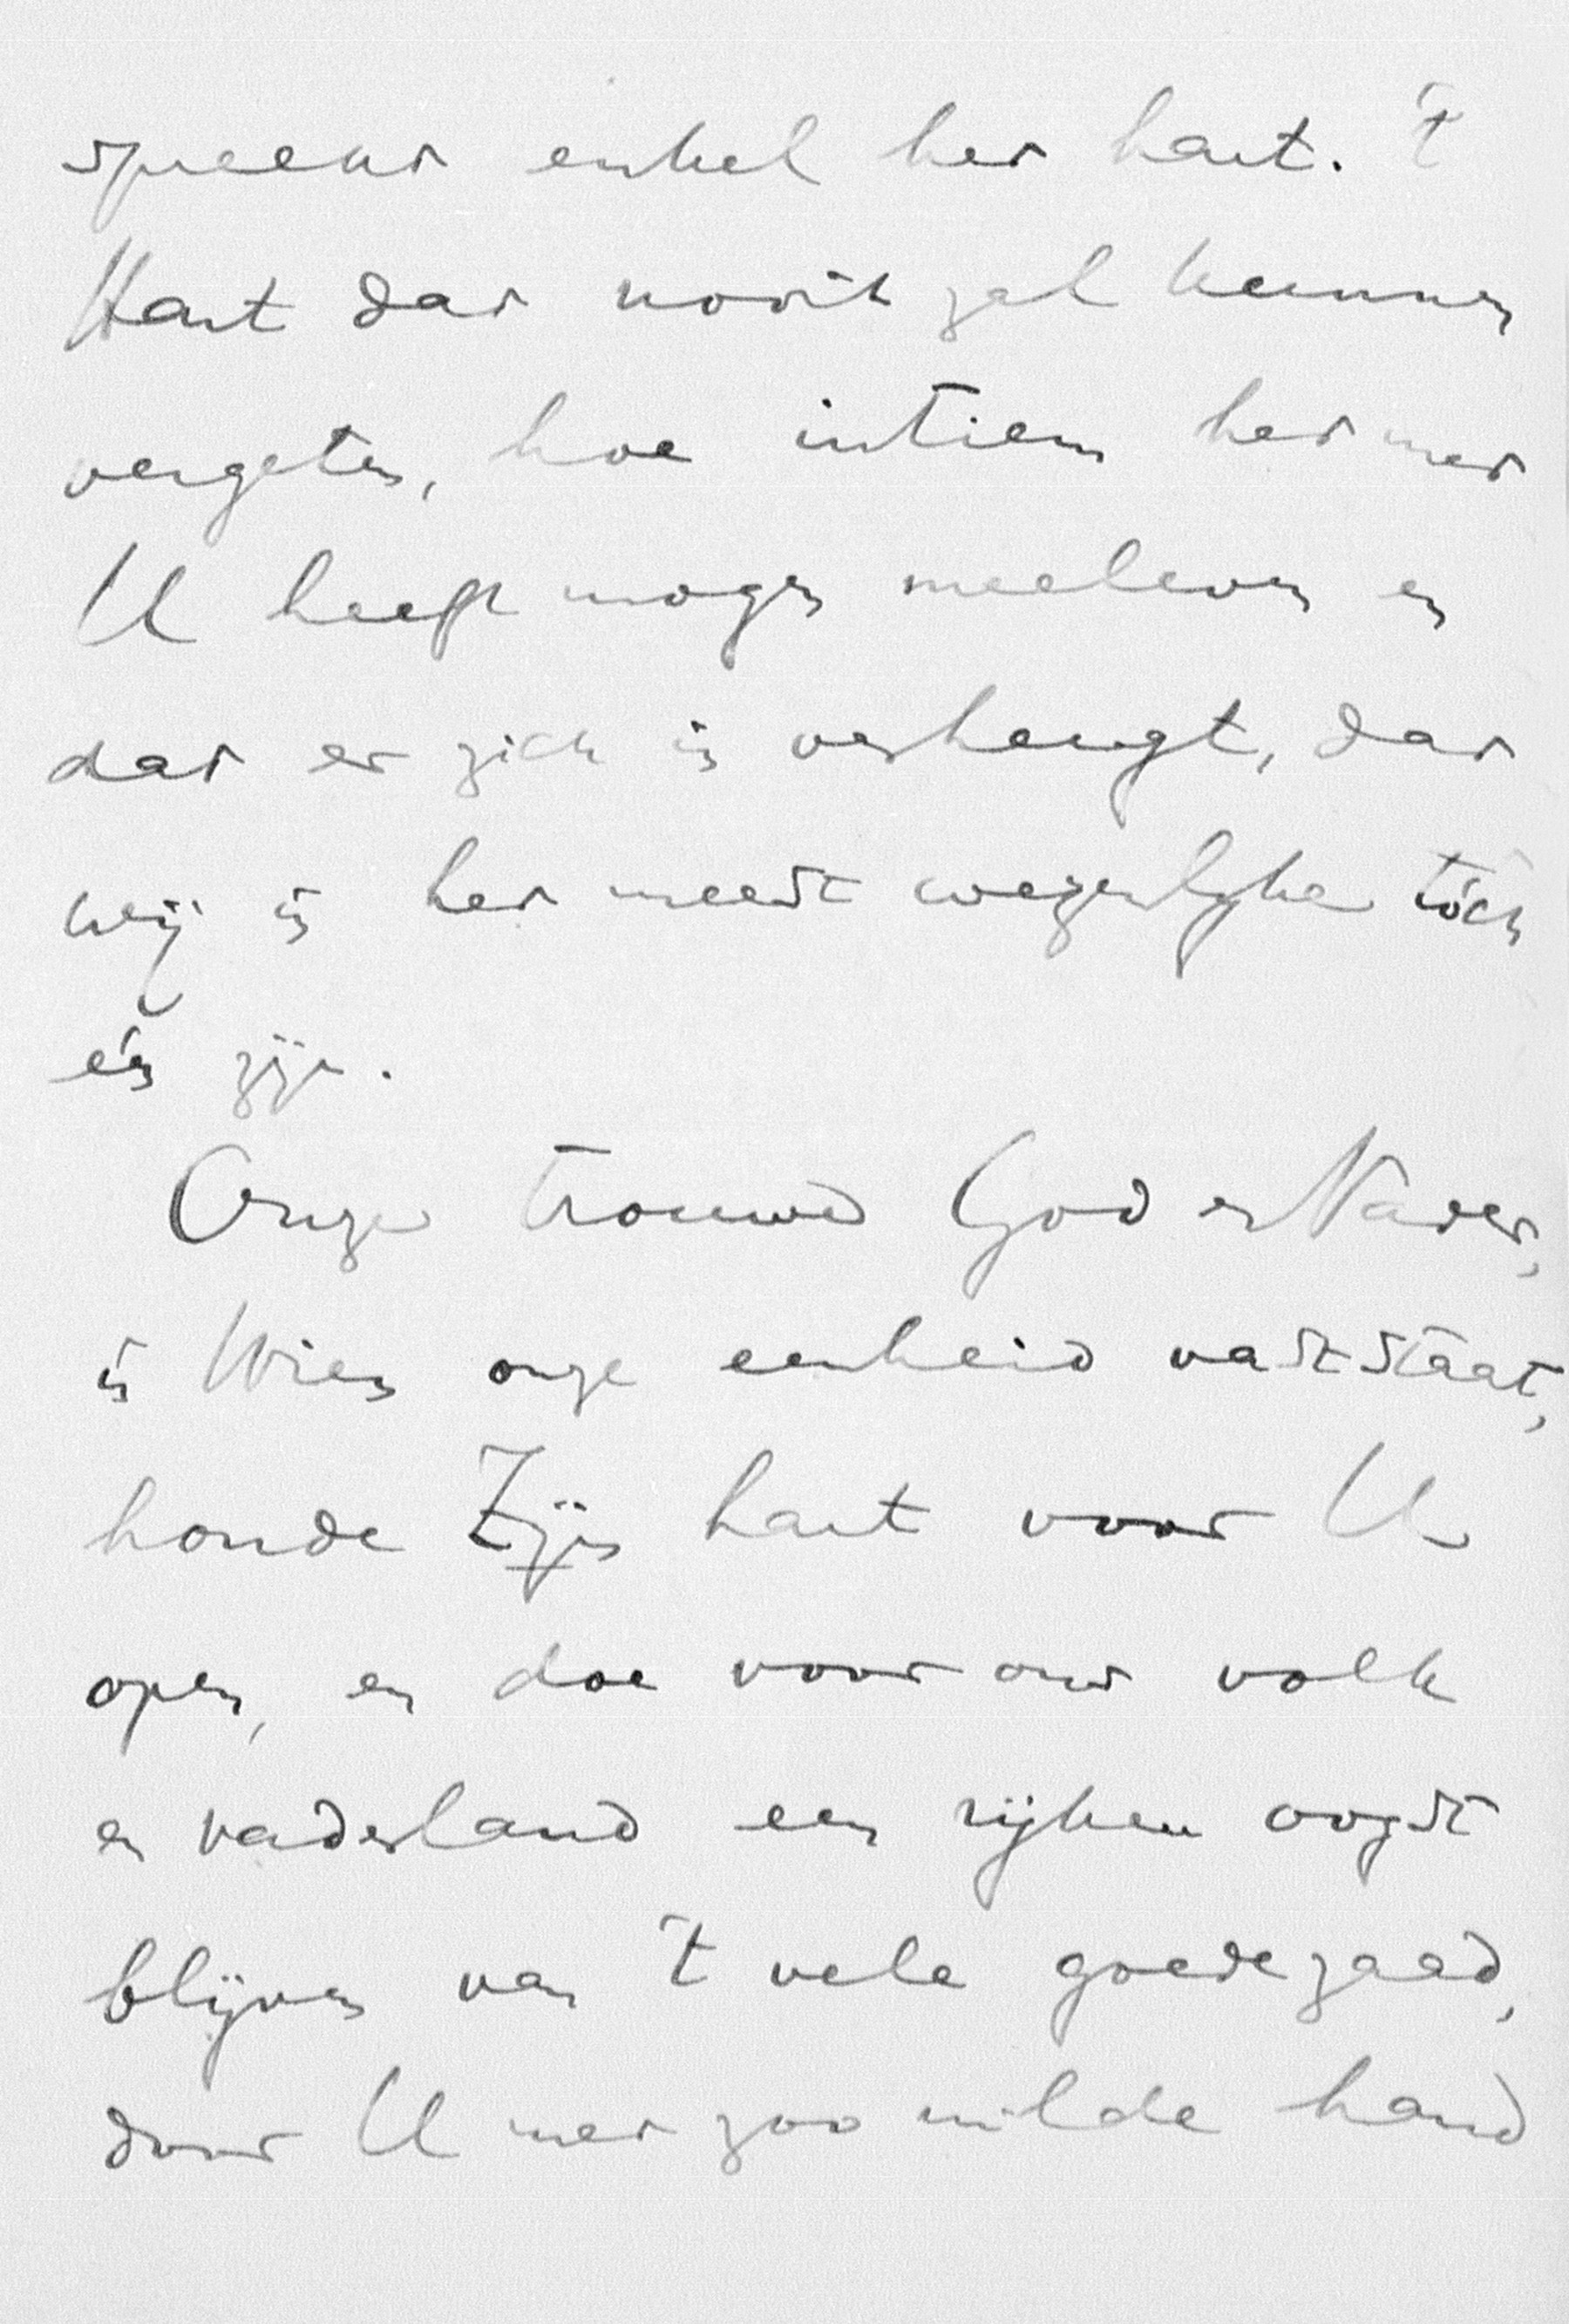 spreekt enkel het hart. 't
Hart dat nooit zal kunnen
vergeten, hoe intiem het met
U heeft mogen meeleven en
dat er zich in verheugt, dat
wij in het meest wezenlijke tóch
één zijn.
Onze trouwe God en Vader,
in Wien onze eenheid vaststaat,
houde Zijn hart voor U
open, en doe voor ons volk
en vaderland een rijken oogst
blijven van 't vele goede zaad,
door U met zoo milde hand